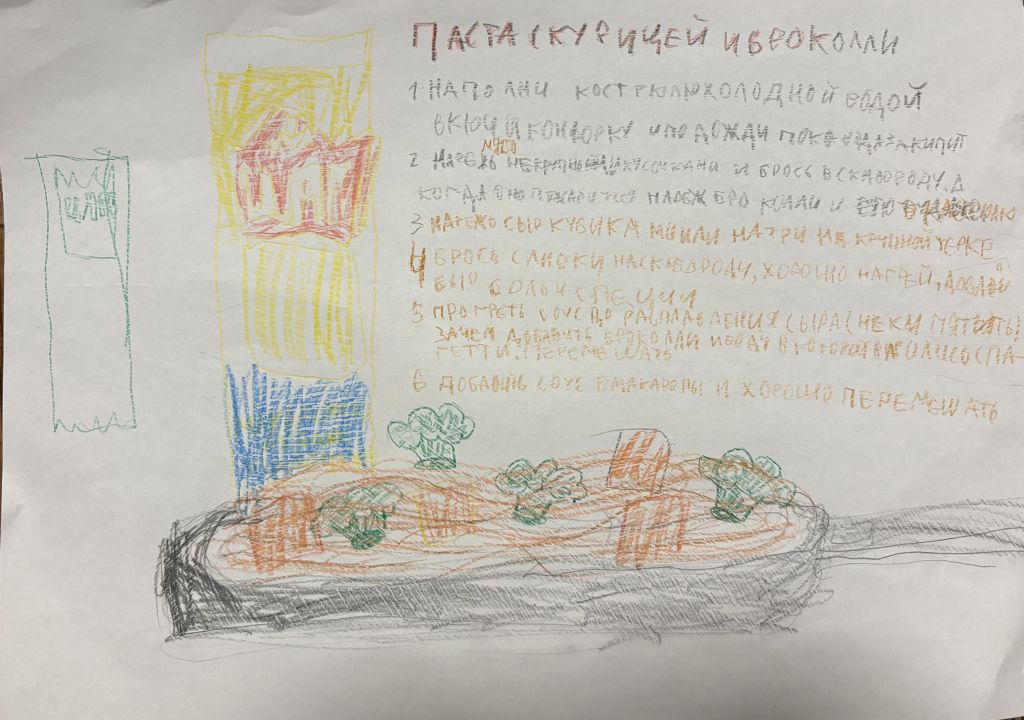 ПАСТА С КУРИЦЕЙ И БРОКОЛЛИ
1 НАПОЛНИ КОСТРЮЛЮ ХОЛОДНОЙ ВОДОЙ
ВКЮЧИ КОНФОРКУ И ПОДОЖДИ ПОКА ВОДА ЗАКИПИТ
МЯСО
2 НАРЕЖЬ НЕКРУПНЫМИ КУСОЧКАМИ И БРОСЬ В СКАВОРОДУ. А
КОГДА ОНО ПОЖАРИТСЯ НАРЕЖ БРОКОЛЛИ И
3 НАРЕЖЬ СЫР КУБИКАМИ ИЛИ НАТРИ НА КРУПНОЙ ТЕРКЕ
4 БРОСЬ СЛИВКИ НА СКАВОРОДУ, ХОРОШО НАГРЕЙ,
СЫР СОЛЬ И СПЕЦИИ
5 ПРОГРЕТЬ СОУС ДО РАСПЛАВЛЕНИЯ СЫРА (НЕ КИПЯТИТЬ)
ЗАЧЕМ ДОБАВИТЬ БРОКОЛЛИ И ВОДУ В КОТОРОЙ ВАРИЛИСЬ СПА-
ГЕТТИ, ПЕРЕМЕШАТЬ
6 ДОБАВИТЬ СОУС В МАКАРОНЫ И ХОРОШО ПЕРЕМЕШАТЬ